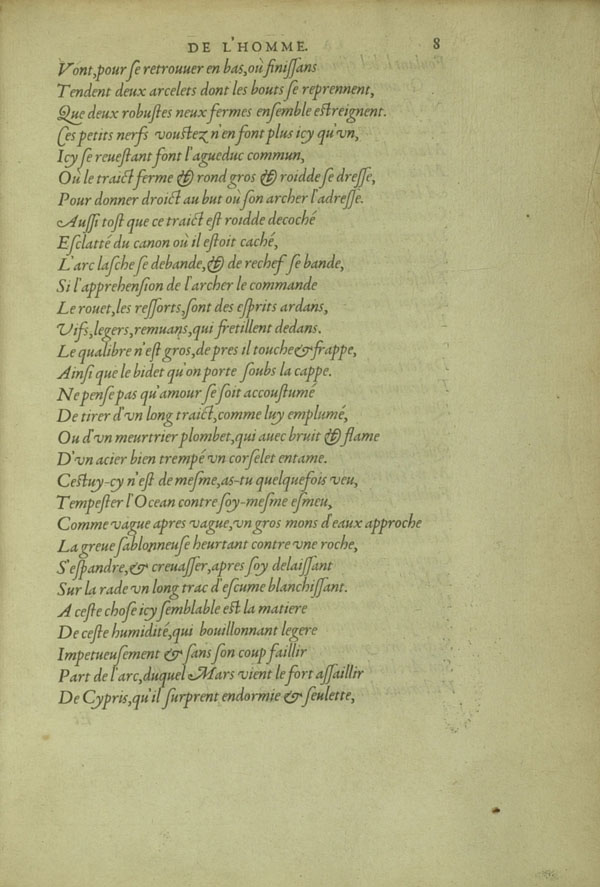 DE L'HOMME. 8
Vont, pour ſe retrouuer en bas, où finiſſans
Tendent deux arcelets dont les bouts ſe reprennent,
Que deux robuſtes neux fermes enſemble eſtreignent.
Ces petits nerfs vouſtez n'en font plus icy qu'vn,
Icy ſe reueſtant font l'agueduc commun,
Où le traict ferme & rond gros & roidde ſe dreſſe,
Pour donner droict au but où ſon archer l'adreſſe.
Auſſi toſt que ce traict eſt roidde decoché
Eſclatté du canon où il eſtoit caché,
L'arc laſche ſe debande, & de rechef ſe bande,
Si l'apprehenſion de l'archer le commande
Le rouet, les reſſorts, ſont des eſprits ardans,
Vifs, legers, remuans, qui fretillent dedans.
Le qualibre n'eſt gros, de pres il touche & frappe,
Ainſi que le bidet qu'on porte ſoubs la cappe.
Ne penſe pas qu'amour ſe ſoit accouſtumé
De tirer d'vn long traict, comme luy emplumé,
Ou d'vn meurtrier plombet, qui auec bruit & flame
D'vn acier bien trempé vn corſelet entame.
Ceſtuy-cy n'eſt de meſme, as-tu quelquefois veu,
Tempeſter l'Ocean contre ſoy-meſme eſmeu,
Comme vague apres vague, vn gros mons d'eaux approche
La greue ſablonneuſe heurtant contre vne roche,
S'eſpandre, & creuaſſer, apres ſoy delaiſſant
Sur la rade vn long trac d'eſcume blanchiſſant.
A ceſte choſe icy ſemblable eſt la matiere
De ceſte humidité, qui bouillonnant legere
Impetueuſement & ſans ſon coup faillir
Part de l'arc, duquel Mars vient le fort aſſaillir
De Cypris, qu'il ſurprent endormie & ſeulette,